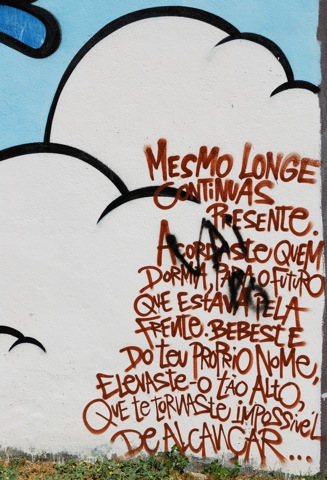 MESMO LONGE
CONTINUAS
PRESENTE.
ACORDASTE QUEM
DORMIA, PARA O FUTURO
QUE ESTAVA PELA
FRENTE. BEBESTE
DO TEU PRÓPRIO NOME,
ELEVASTE-O TÃO ALTO,
QUE TE TORNASTE IMPOSSÍVEL
DE ALCANÇAR...